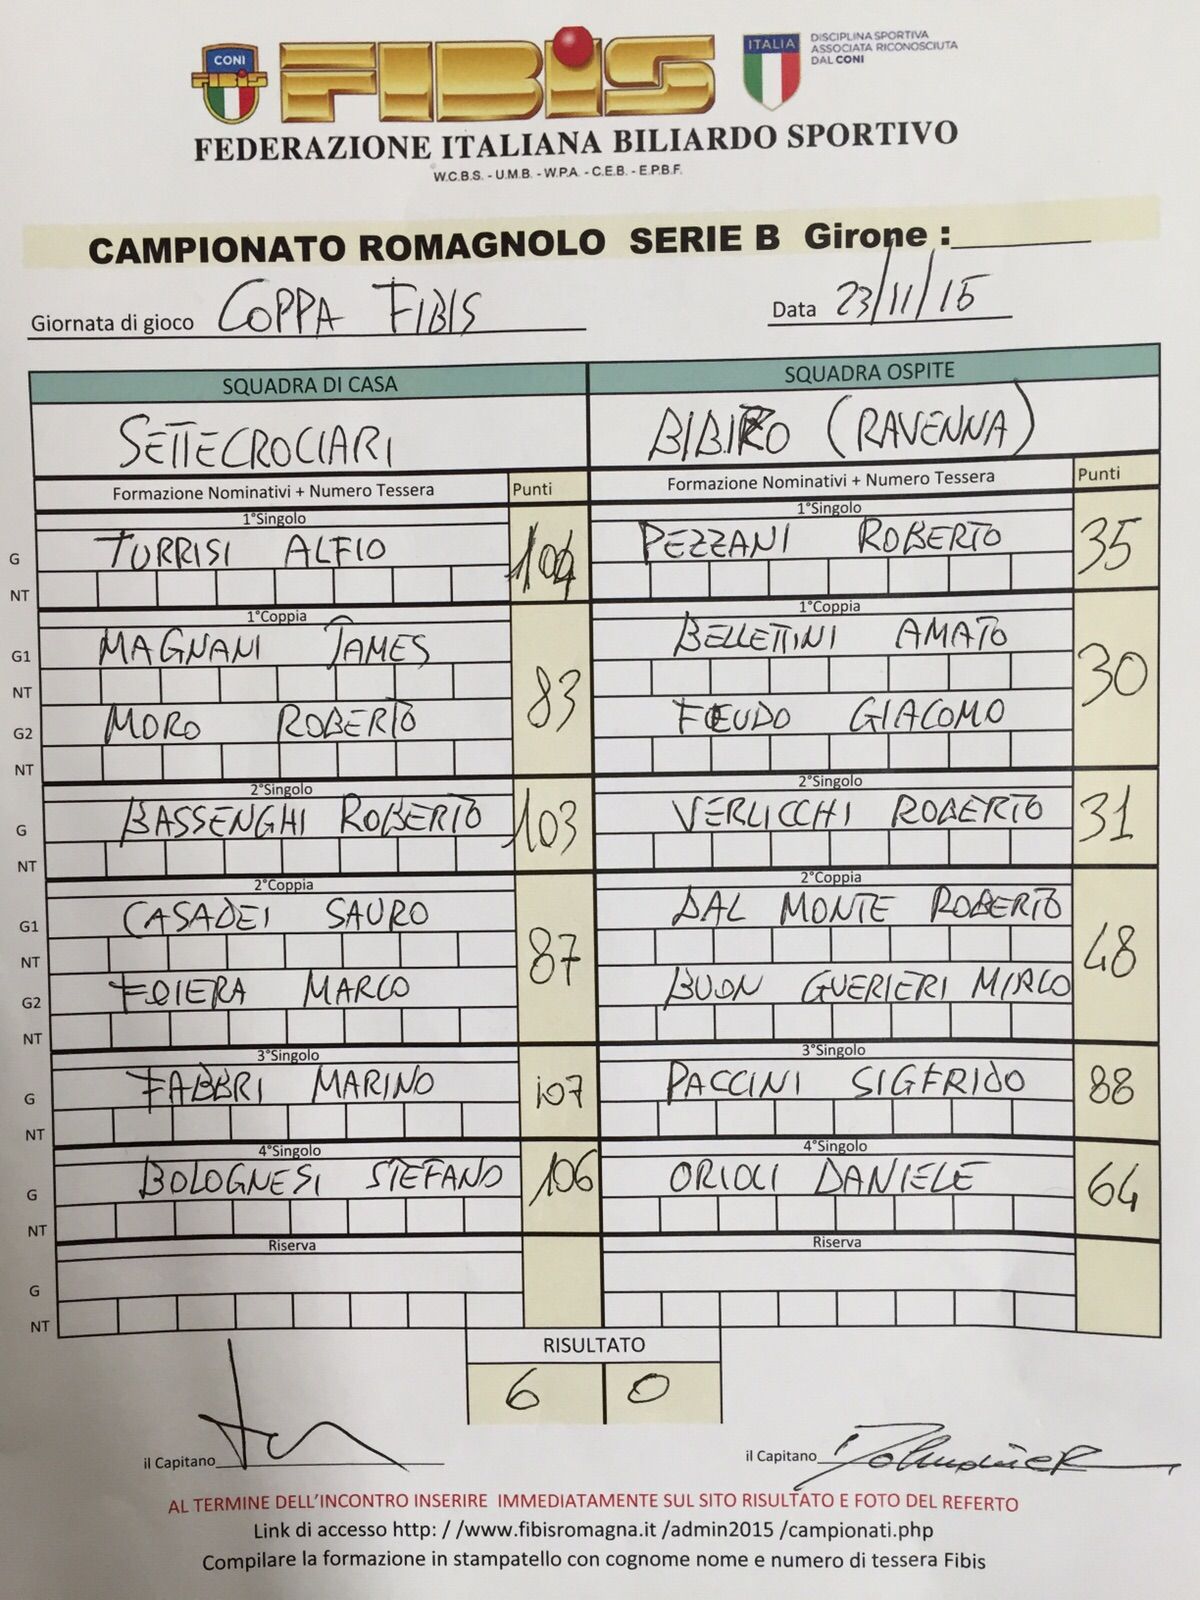 CONI
FIBIS
FIBIS
ITALIA
DISCIPLINA SPORTIVA
ASSOCIATA RICONOSCIUTA
DAL CONI
FEDERAZIONE ITALIANA BILIARDO SPORTIVO
W.C.B.S. - U.M.B. - W.P.A. - C.E.B. - E.P.B.F.
CAMPIONATO ROMAGNOLO SERIE B Girone :
Giornata di gioco COPPA FIBIS Data 23/11/15
SQUADRA DI CASA SQUADRA OSPITE
SETTECROCIARI BIBIRO (RAVENNA)
Formazione Nominativi + Numero Tessera Punti Formazione Nominativi + Numero Tessera Punti
1°Singolo 1°Singolo
G TURRISI ALFIO 104 PEZZANI ROBERTO 35
NT
1°Coppia 1°Coppia
G1 MAGNANI JAMES BELLETTINI AMATO
NT 83 30
G2 MORO ROBERTO FEUDO GIACOMO
NT
2°Singolo 2°Singolo
G BASSENGHI ROBERTO 103 VERLICCHI ROBERTO 31
NT
2°Coppia 2°Coppia
G1 CASADEI SAURO DAL MONTE ROBERTO
NT 87 48
G2 FOIERA MARCO BUON GUERIERI MIRCO
NT
3°Singolo 3°Singolo
G FABBRI MARINO 107 PACCINI SIGFRIDO 88
NT
4°Singolo 4°Singolo
G BOLOGNESI STEFANO 106 ORIOLI DANIELE 64
NT
Riserva Riserva
G
NT
RISULTATO
6 0
il Capitano il Capitano
AL TERMINE DELL'INCONTRO INSERIRE IMMEDIATAMENTE SUL SITO RISULTATO E FOTO DEL REFERTO
Link di accesso http: / /www.fibisromagna.it /admin2015 /campionati.php
Compilare la formazione in stampatello con cognome nome e numero di tessera Fibis